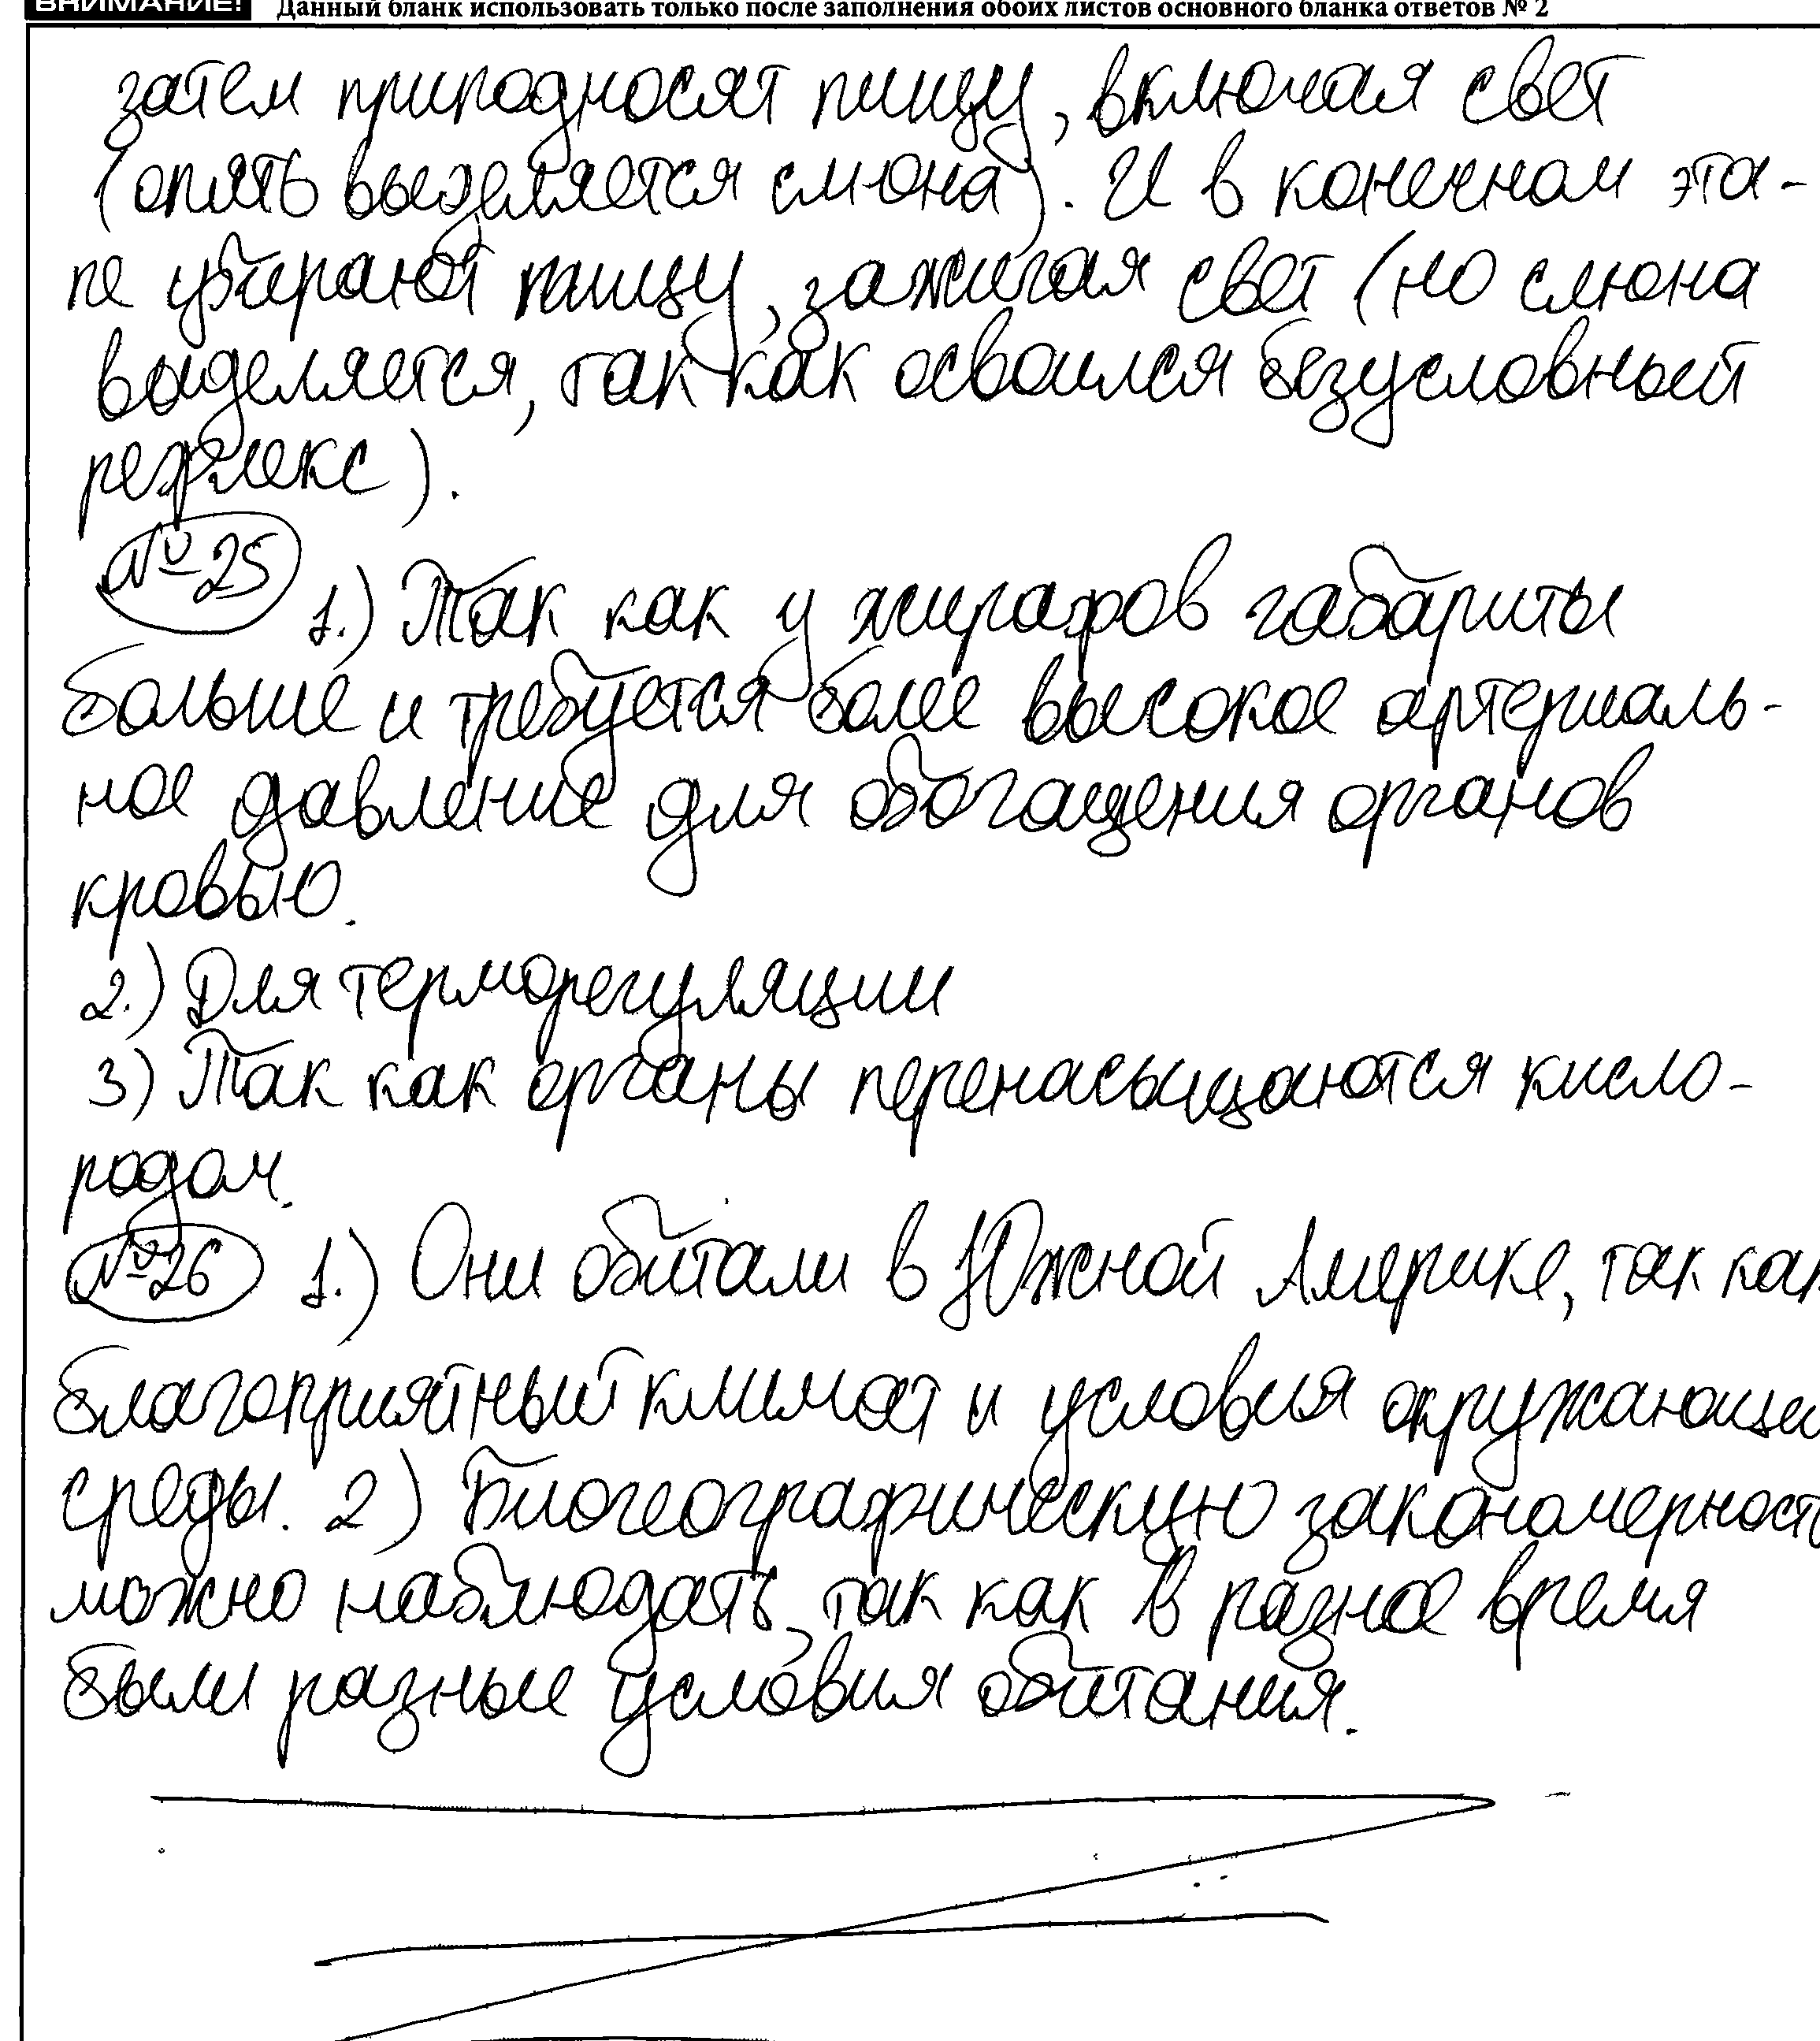 ВНИМАНИЕ! Данный бланк использовать только после заполнения обоих листов основного бланка ответов № 2
затем приподносят пищу, включая свет
(опять выделяется слюна). И в конечном эта-
пе убирают пищу, зажигая свет (но слюна
выделяется, так как освоился безусловный
рефлекс).
№25 1.) Так как у жирафов габариты
больше и требуется более высокое артериаль-
ное давление для обогащения органов
кровью.
2.) Для терморегуляции
3) Так как органы перенасыщаются кисло-
родом.
№26 1.) Они обитали в Южной Америке, так как
благоприятный климат и условия окружающей
среды. 2) Биогеографическую закономерность
можно наблюдать, так как в разное время
были разные условия обитания.